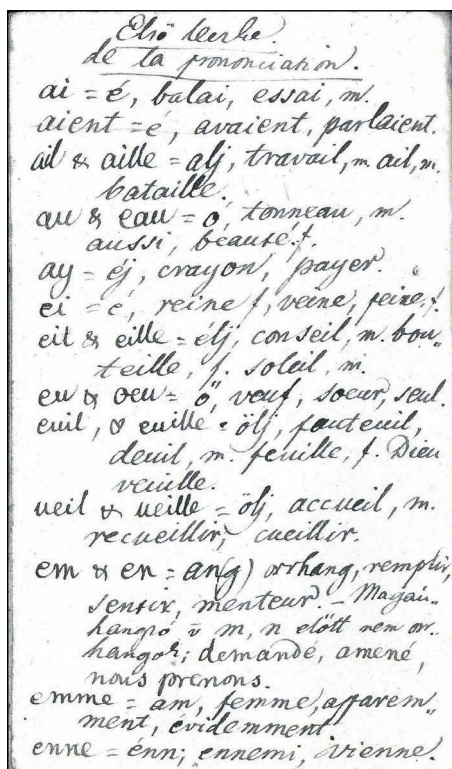 Első lecke.
de la prononciation.
ai = é, balai, essai, m.
aient = é, avaient, parlaient.
ail & aille = alj, travail, m. ail, m.
bataille.
au & eau = ó, tonneau, m.
aussi, beauté. f.
ay = éj, crayon, payer.
ei = é, reine f, veine, peine, f.
eil & eille = élj, conseil, m. bou„
teille, f. soleil, m.
eu & oeu = ő, veuf, soeur, seul.
euil, & euille = ölj, fauteuil,
deuil, m. feuille, f. Dieu
veuille.
ueil & ueille = ölj, accueil, m.
recueillir, cueillir.
em & en = an(g) orrhang, remplir,
sentir, menteur. – Magán„
hangzó m, n előtt nem orr„
hangok; demandé, amené,
nous prenons.
emme = am, femme, apparem„
ment, évidemment
enne = énn; ennemi, vienne.